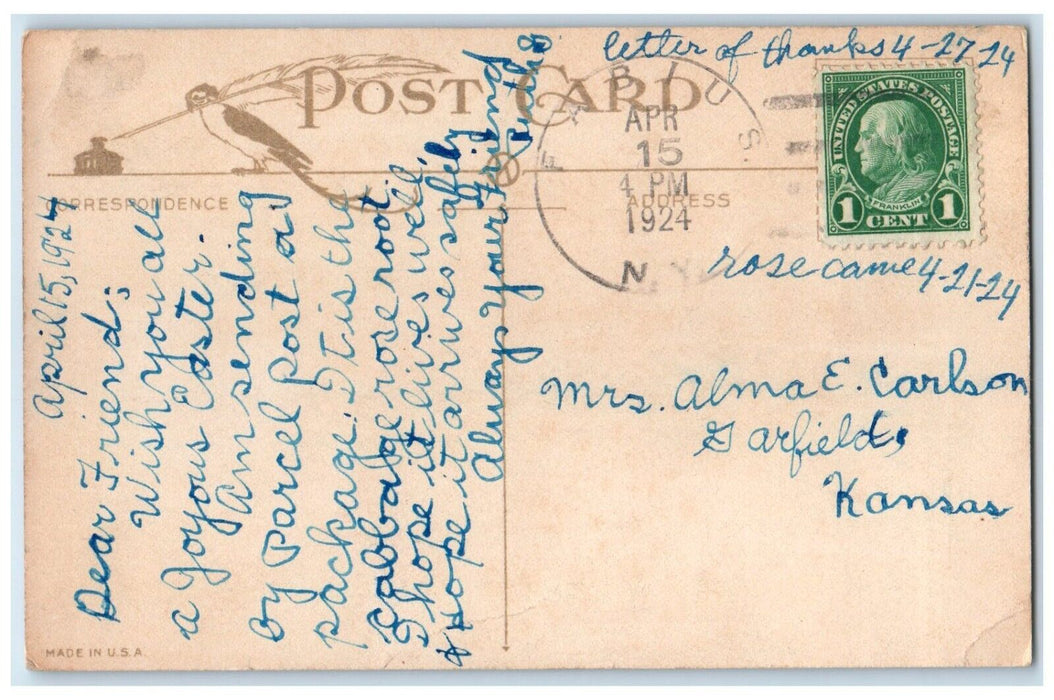 letter of thanks 4-27-24
POST CARD
FABIUS
APR
15
4 PM
1924
N.Y.
UNITED STATES POSTAGE
FRANKLIN
1 CENT 1
CORRESPONDENCE
ADDRESS
rose came 4-21-24
Mrs. Alma E. Carlson
Garfield,
Kansas
April 15, 1924
Dear Friend:
Wish you all
a Joyous Easter.
Am sending
by Parcel Post a
package. It is the
Cabbage rose root,
I hope it lives well,
& Hope it arrives safely
Always Your Friend
MADE IN U.S.A.